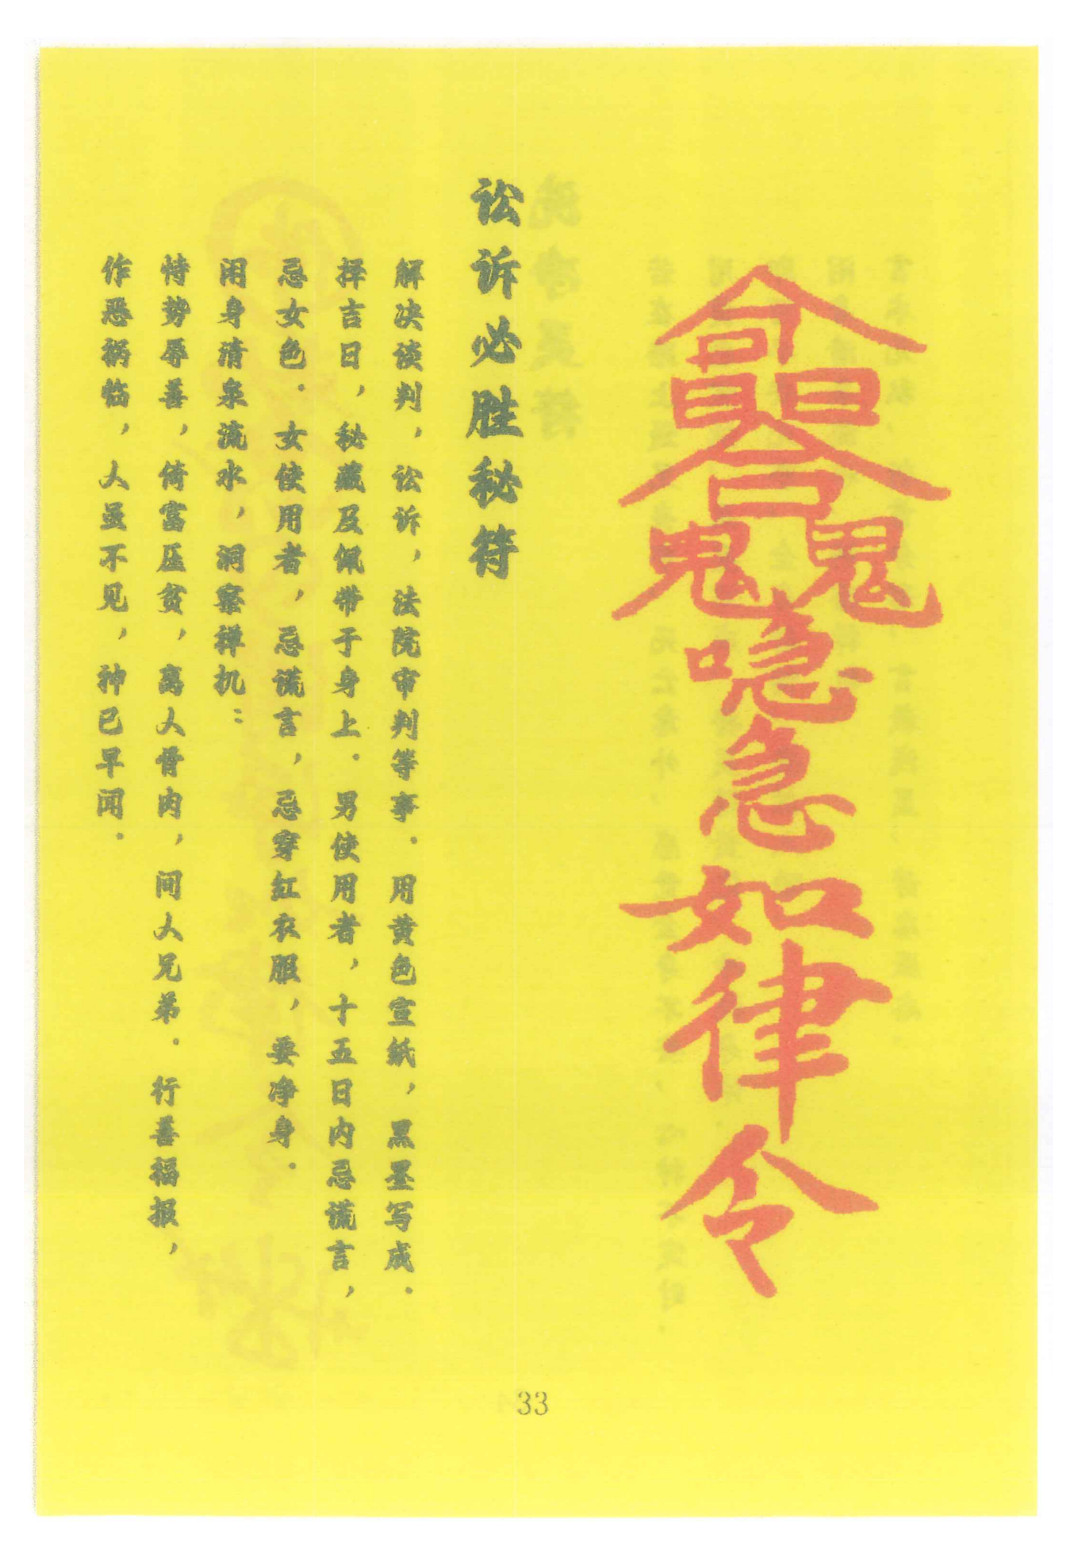 喼
急
如
律
令
讼诉必胜秘符
解决谈判，讼诉，法院审判等事．用黄色宣纸，黑墨写成．
择吉日，秘藏及佩带于身上．男使用者，十五日内忌谎言，
忌女色．女使用者，忌谎言，忌穿红衣服，要净身．
闲身清泉流水，洞察禅机：
恃势辱善，倚富压贫，离人骨肉，间人兄弟．行善福报，
作恶祸临，人虽不见，神已早闻．
33